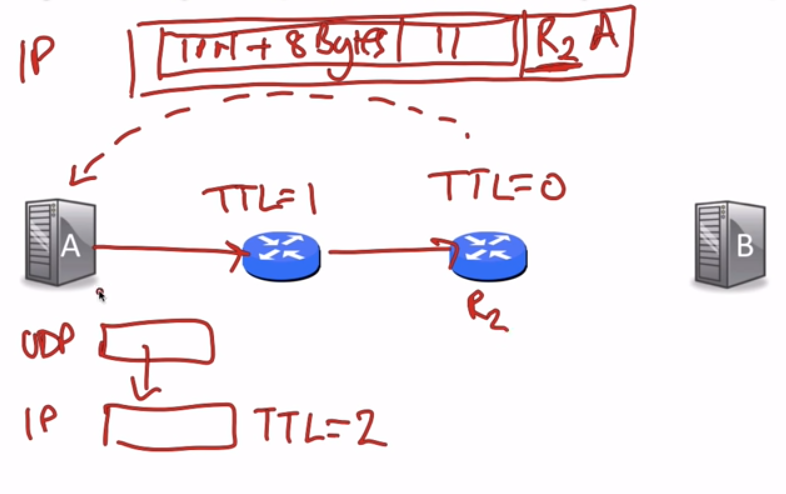 IP IPH + 8 Bytes 11 R2 A
TTL=1 TTL=0
A B
R2
UDP
IP TTL=2